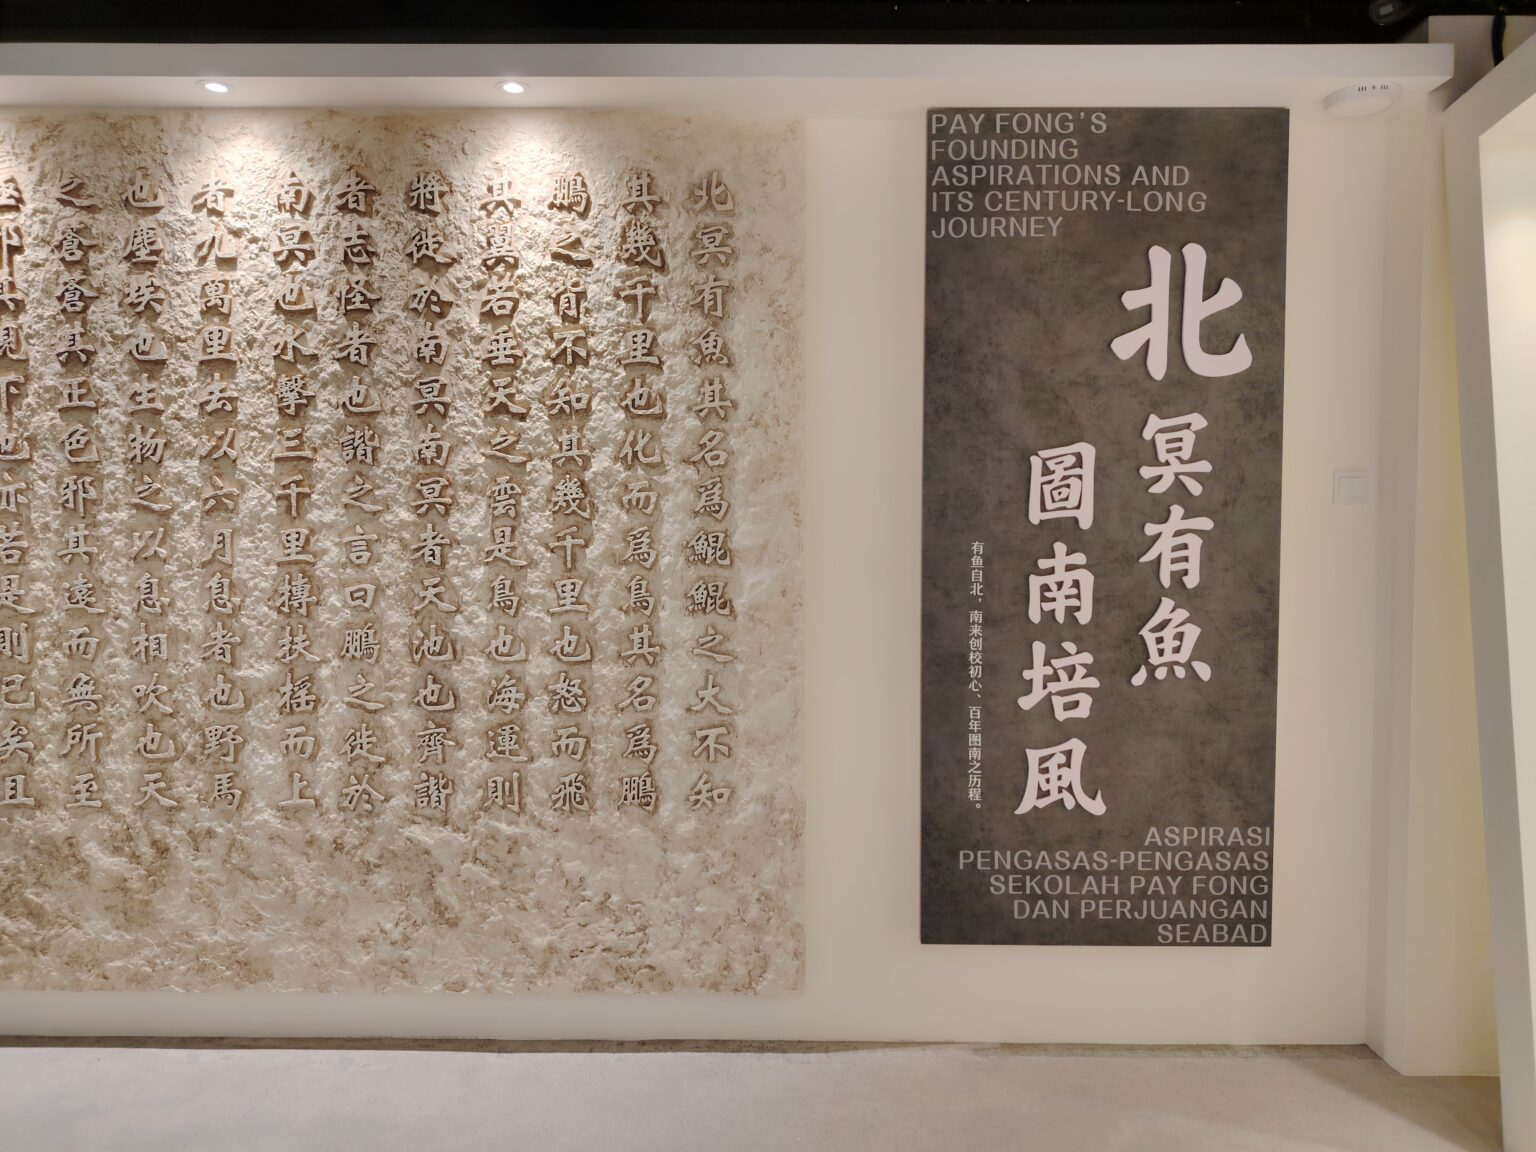 PAY FONG'S
FOUNDING
ASPIRATIONS AND
ITS CENTURY-LONG
JOURNEY
北冥有魚
圖南培風
有鱼自北，南来创校初心、百年图南之历程。
ASPIRASI
PENGASAS-PENGASAS
SEKOLAH PAY FONG
DAN PERJUANGAN
SEABAD
北冥有魚其名爲鯤鯤之大不知
其幾千里也化而爲鳥其名爲鵬
鵬之背不知其幾千里也怒而飛
其翼若垂天之雲是鳥也海運則
將徙於南冥南冥者天池也齊諧
者志怪者也諧之言曰鵬之徙於
南冥也水擊三千里摶扶搖而上
者九萬里去以六月息者也野馬
也塵埃也生物之以息相吹也天
之蒼蒼其正色邪其遠而無所至
極邪其視下也亦若是則已矣且